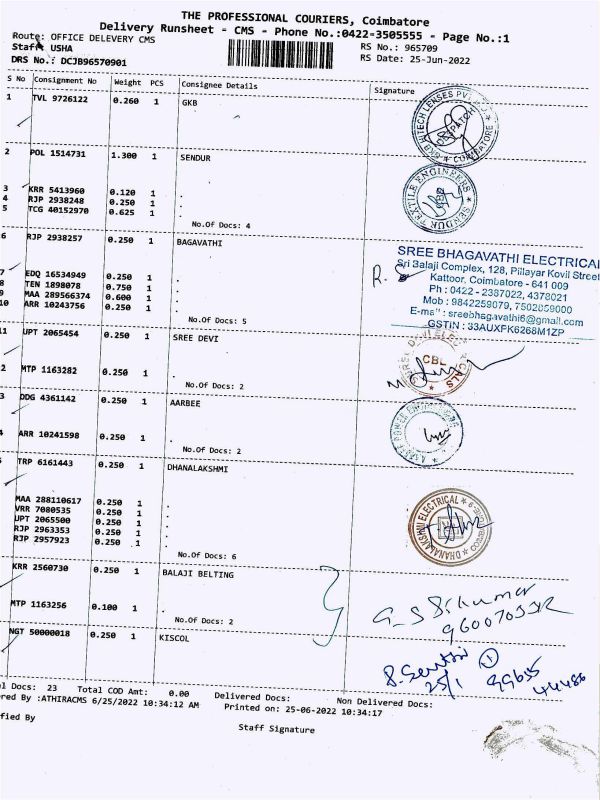 THE PROFESSIONAL COURIERS, Coimbatore
Delivery Runsheet - CMS - Phone No.:0422-3505555 - Page No.:1
Route: OFFICE DELEVERY CMS
RS No.: 965709
Staff: USHA
RS Date: 25-Jun-2022
DRS No.: DCJB96570901
S No Consignment No Weight PCS Consignee Details Signature
1 TVL 9726122 0.260 1 GKB
2 POL 1514731 1.300 1 SENDUR
3 KRR 5413960 0.120 1 .
4 RJP 2938248 0.250 1 .
5 TCG 40152970 0.625 1 .
No.Of Docs: 4
6 RJP 2938257 0.250 1 BAGAVATHI
7 EDQ 16534949 0.250 1 .
8 TEN 1898078 0.750 1 .
9 MAA 289566374 0.600 1 .
10 ARR 10243756 0.250 1 .
No.Of Docs: 5
SREE BHAGAVATHI ELECTRICAL
Sri Balaji Complex, 128, Pillayar Kovil Street
Kattoor, Coimbatore - 641 009
Ph : 0422 - 2387022, 4378021
Mob : 9842259079, 7502059000
E-mail : sreebhagavathi6@gmail.com
GSTIN : 33AUXFK6268M1ZP
11 UPT 2065454 0.250 1 SREE DEVI
2 MTP 1163282 0.250 1 .
No.Of Docs: 2
CBE
3 DDG 4361142 0.250 1 AARBEE
4 ARR 10241598 0.250 1 .
No.Of Docs: 2
TRP 6161443 0.250 1 DHANALAKSHMI
MAA 288110617 0.250 1 .
VRR 7080535 0.250 1 .
UPT 2065500 0.250 1 .
RJP 2963353 0.250 1 .
RJP 2957923 0.250 1 .
No.Of Docs: 6
DHANALAKSHMI ELECTRICAL
KRR 2560730 0.250 1 BALAJI BELTING
MTP 1163256 0.100 1 .
No.Of Docs: 2
NGT 50000018 0.250 1 KISCOL
25/1
99655
44486
l Docs: 23 Total COD Amt: 0.00 Delivered Docs: Non Delivered Docs:
red By :ATHIRACMS 6/25/2022 10:34:12 AM Printed on: 25-06-2022 10:34:17
ified By
Staff Signature